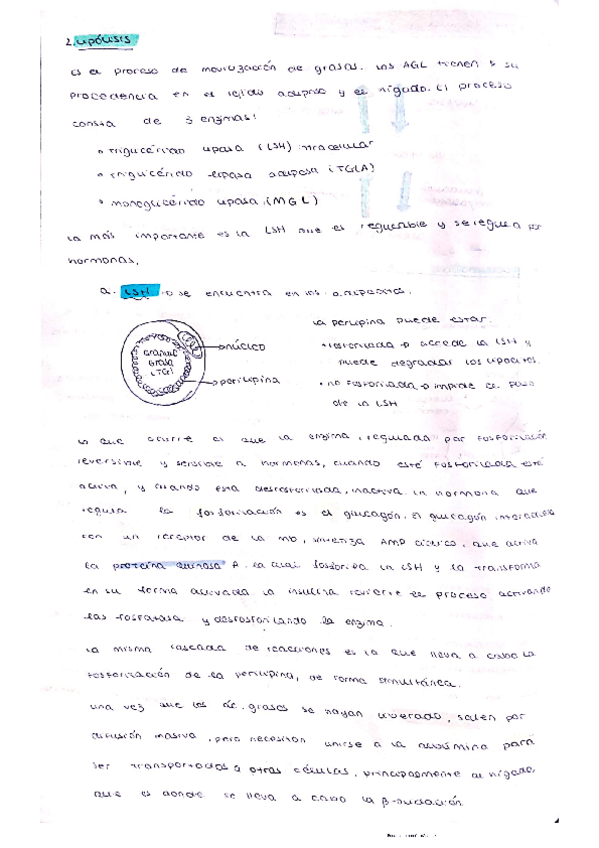 2. LIPÓLISIS
Es el proceso de movilización de grasas. Los AGL tienen su
procedencia en el tejido adiposo y el hígado. El proceso
consta de 3 enzimas:
• triglicérido lipasa (LSH) intracelular
• triglicérido lipasa adiposa (TGLA)
• monoglicérido lipasa (MGL)
La más importante es la LSH que es regulable y se regula por
hormonas.
a. LSH → se encuentra en los adipocitos.
La perilipina puede estar:
• fosforilada → accede la LSH y
puede degradar los lipocitos
• no fosforilada → impide el paso
de la LSH
núcleo
granulo
grasa
(TG)
perilipina
Lo que ocurre es que la enzima, regulada por fosforilación
reversible y sensible a hormonas, cuando esté fosforilada esté
activa, y cuando esta desfosforilada, inactiva. La hormona que
regula la fosforilación es el glucagón. El glucagón interacciona
con un receptor de la mb, sintetiza AMP cíclico, que activa
la proteína quinasa A. La cual fosforila la LSH y la transforma
en su forma activada. La insulina revierte el proceso activando
las fosfatasa y desfosforilando la enzima.
La misma cascada de reacciones es la que lleva a cabo la
fosforilación de la perilipina, de forma simultánea.
Una vez que los ác. grasos se hayan liberado, salen por
difusión masiva, pero necesitan unirse a la albúmina para
ser transportados a otras células, principalmente al hígado,
que es donde se lleva a cabo la β-oxidación.